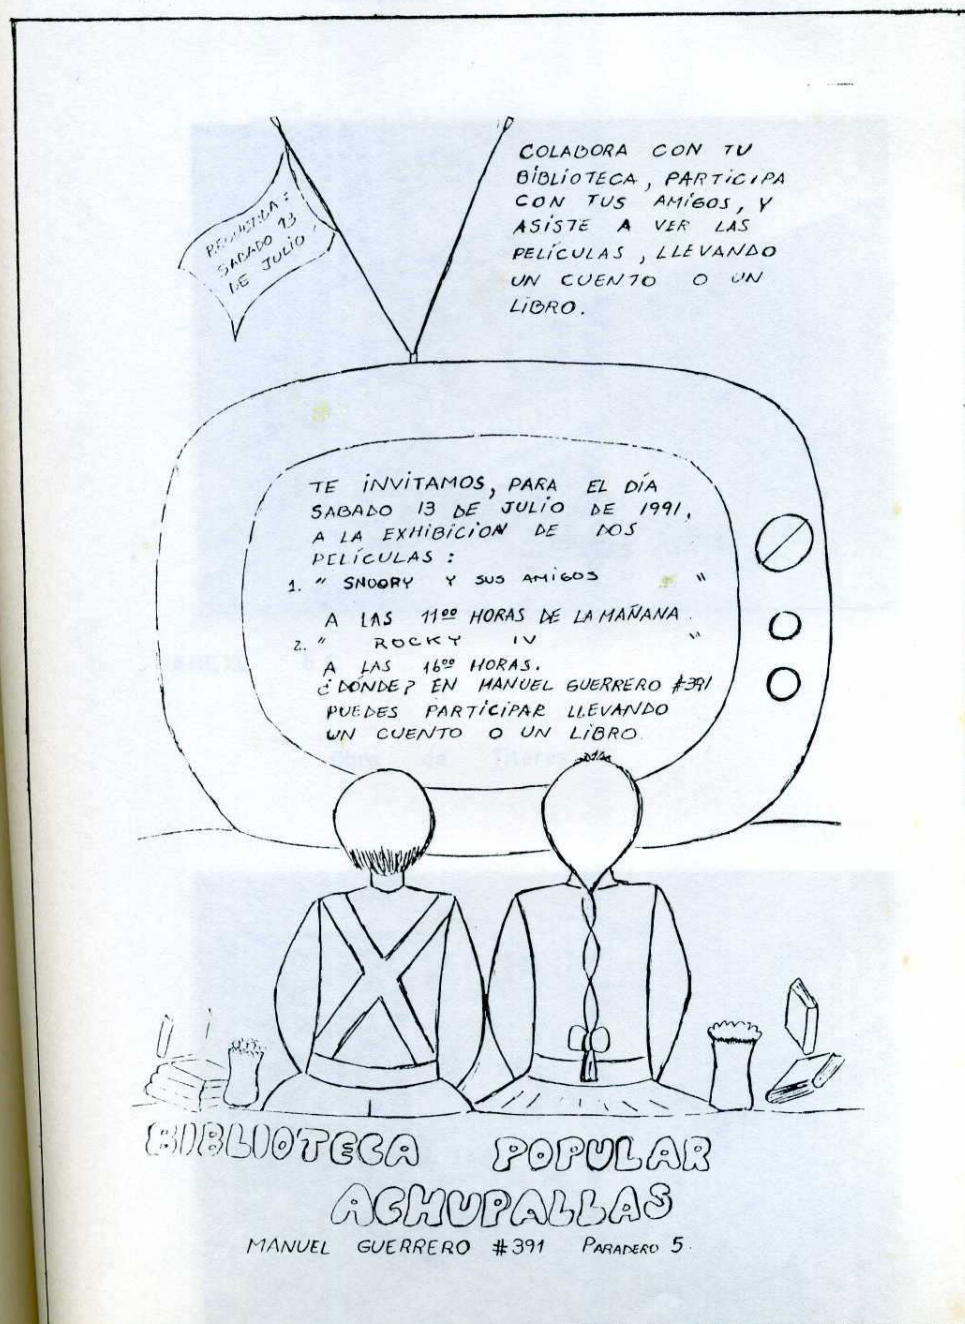 COLABORA CON TU
BIBLIOTECA, PARTICIPA
CON TUS AMIGOS, Y
ASISTE A VER LAS
PELÍCULAS, LLEVANDO
UN CUENTO O UN
LIBRO.
RECUERDA:
SABADO 13
DE JULIO
TE INVITAMOS, PARA EL DÍA
SABADO 13 DE JULIO DE 1991,
A LA EXHIBICION DE DOS
PELÍCULAS:
1. " SNOOPY Y SUS AMIGOS "
A LAS 11ºº HORAS DE LA MAÑANA.
2. " ROCKY IV "
A LAS 16ºº HORAS.
¿DÓNDE? EN MANUEL GUERRERO #391
PUEDES PARTICIPAR LLEVANDO
UN CUENTO O UN LIBRO.
Obra de Titeres
BIBLIOTECA POPULAR
ACHUPALLAS
MANUEL GUERRERO #391 PARADERO 5.